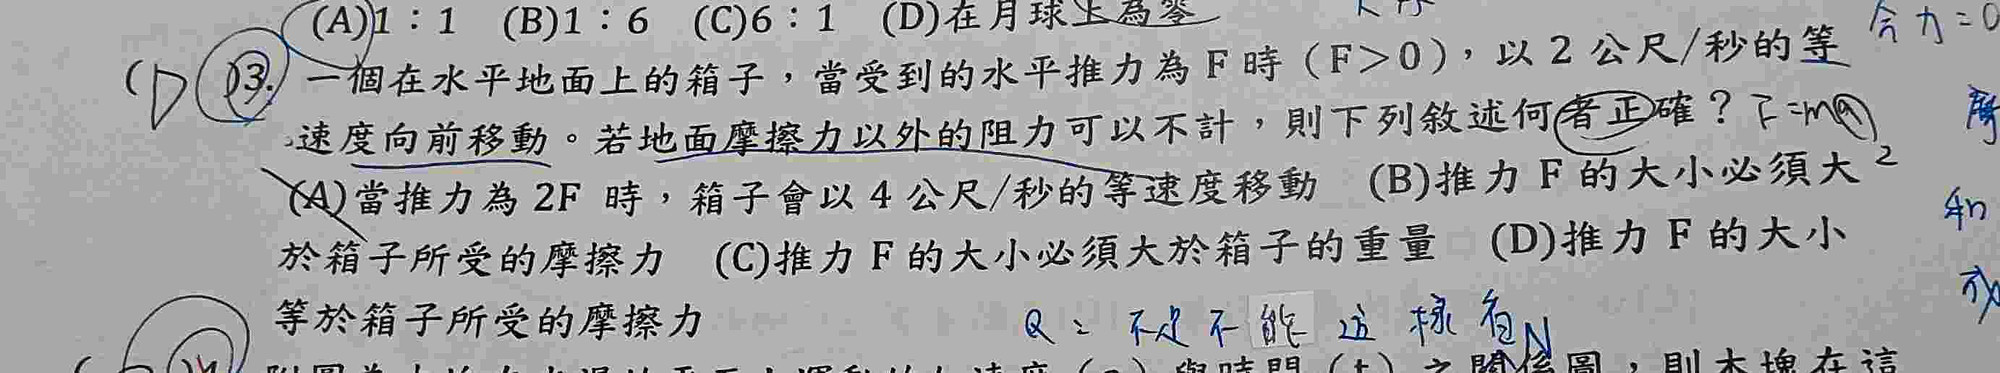 (A)1：1 (B)1：6 (C)6：1 (D)在月球上為零
合力=0
(D)13. 一個在水平地面上的箱子，當受到的水平推力為 F 時（F＞0），以 2 公尺/秒的等
速度向前移動。若地面摩擦力以外的阻力可以不計，則下列敘述何者正確？ F=ma
(A)當推力為 2F 時，箱子會以 4 公尺/秒的等速度移動 (B)推力 F 的大小必須大
於箱子所受的摩擦力 (C)推力 F 的大小必須大於箱子的重量 (D)推力 F 的大小
和
等於箱子所受的摩擦力
Q：不是不能這樣看